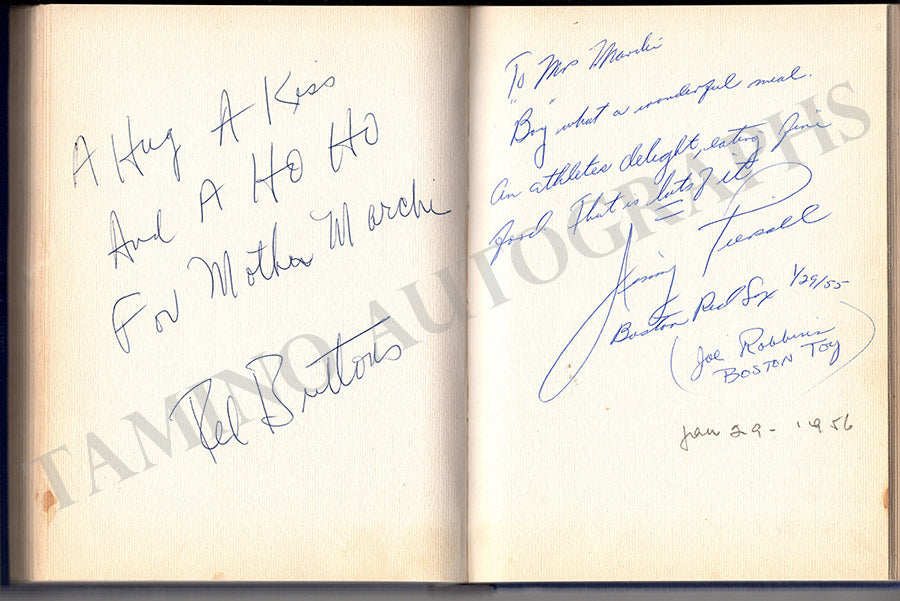 A Hug A Kiss
And A HO HO
For Mother Marchi
Red Buttons
To Mrs Marchi
"Boy" what a wonderful meal.
An athletes delight, eating fine
food. That is lots of it.
Jimmy Piersall
Boston Red Sox 1/29/55
(Joe Robbins
BOSTON TOY)
Jan 29 - 1956
TAMINO AUTOGRAPHS